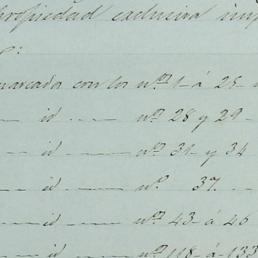 propiedad exclusiva imp
P:
marcada con los nos 1 á 28
id nos 28 y 29
id nos 31 y 34
id no 37
id nos 43 á 46
id nos 118 á 133